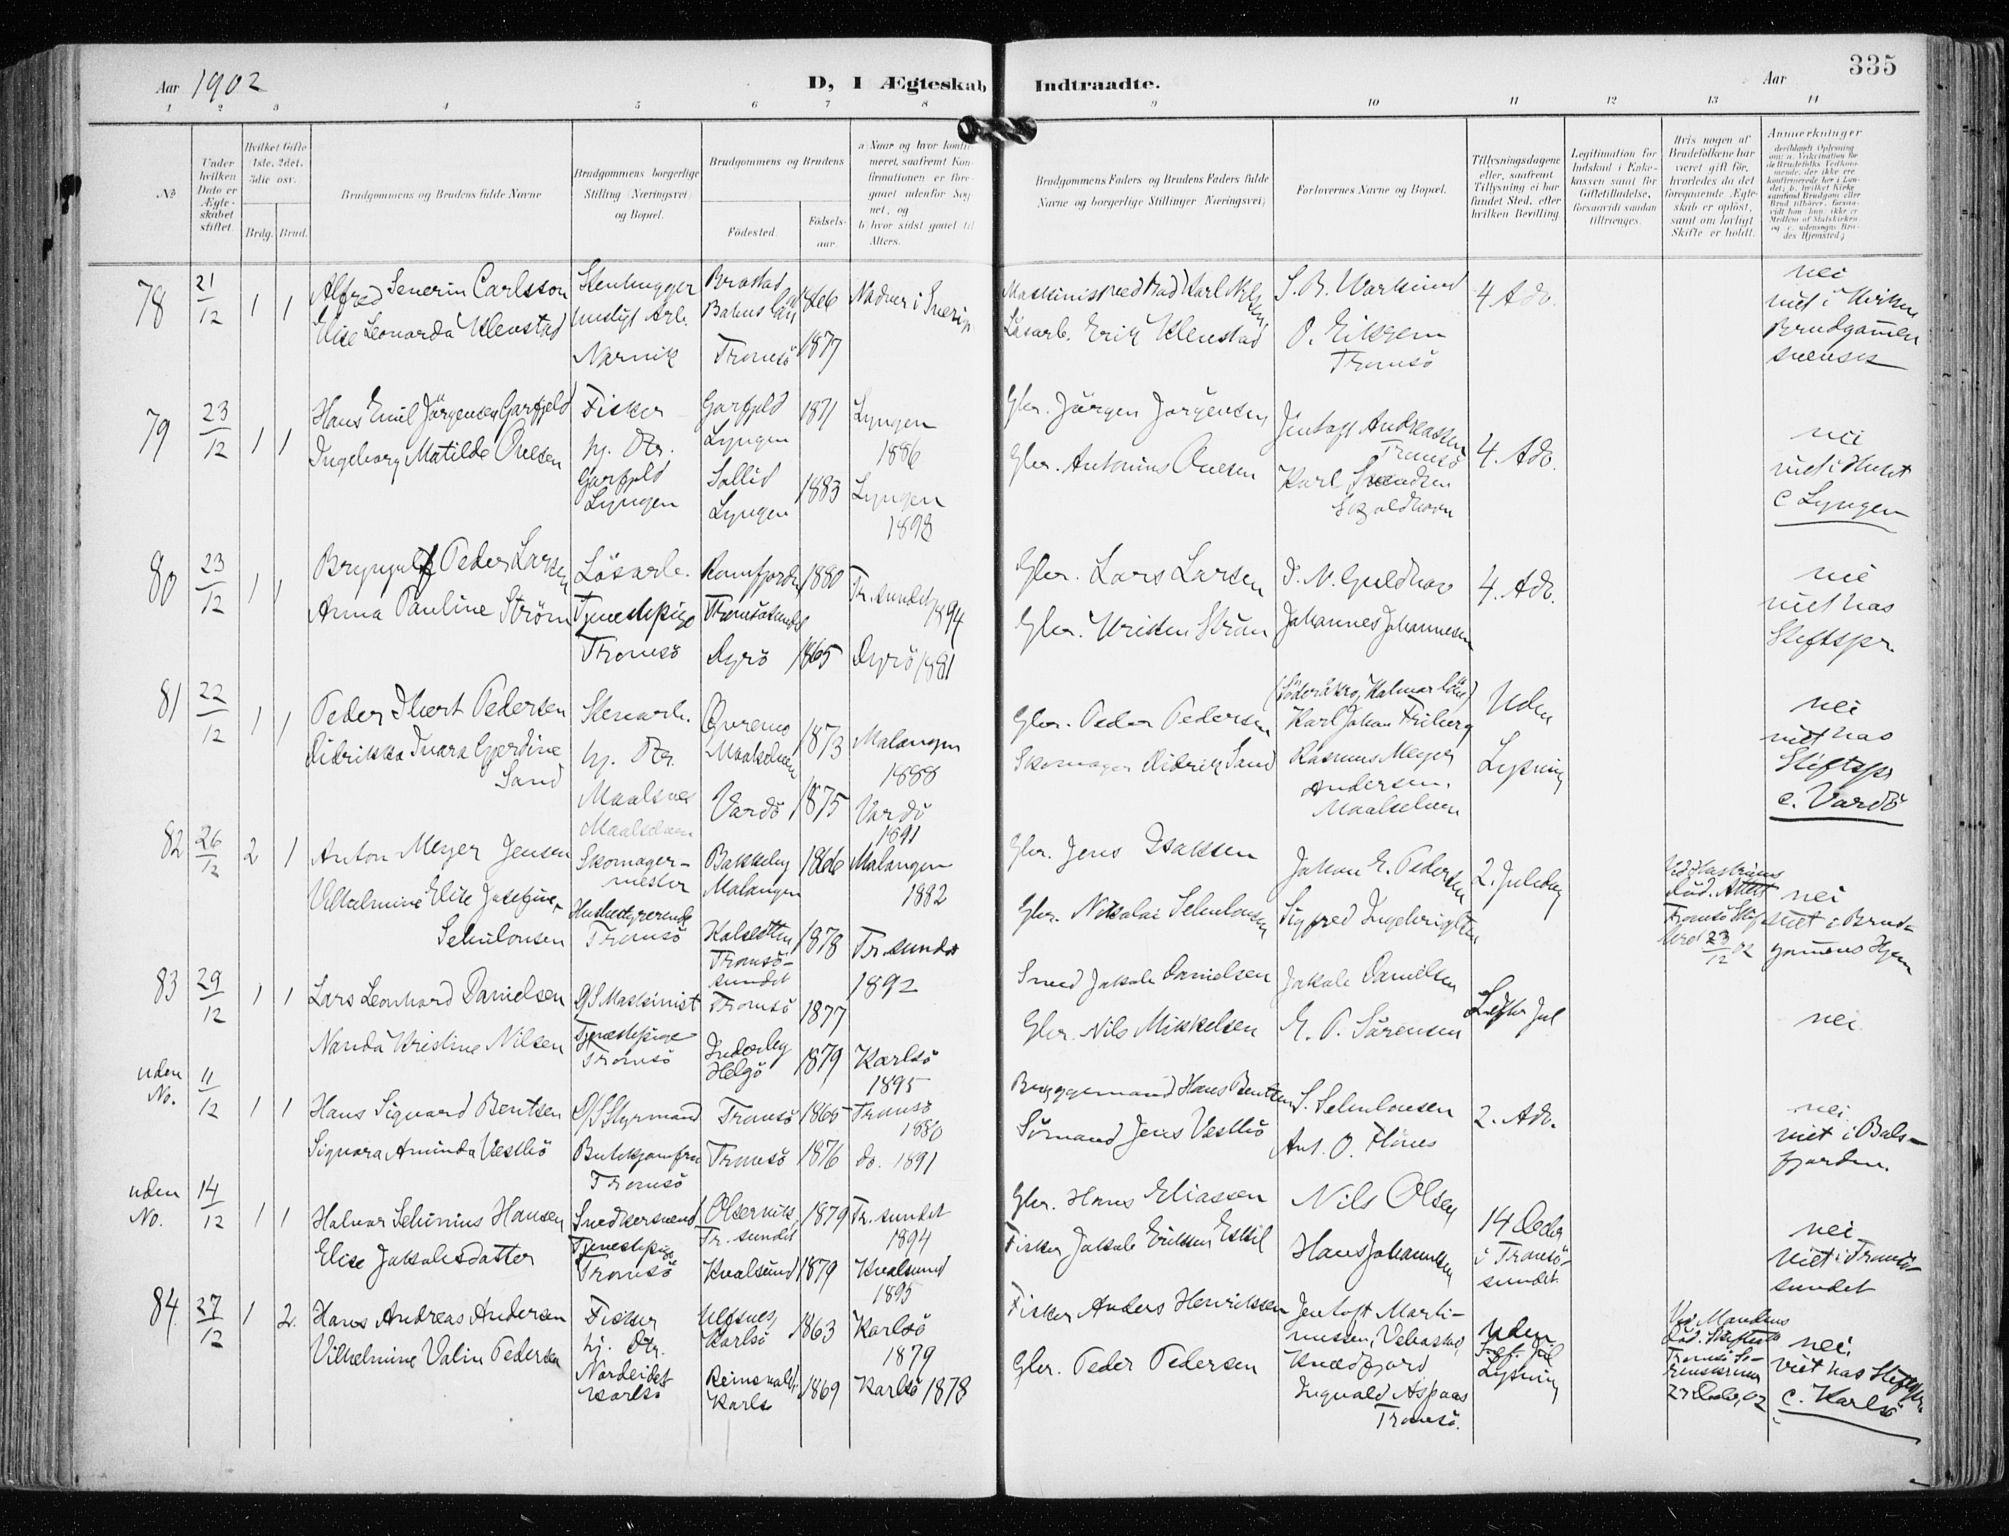 Aar 1902
D, I Ægteskab Indtraadte.
Aar
335
1 2 3 4 5 6 7 8 9 10 11 12 13 14
No
Under hvilken Dato er Ægteskabet stiftet.
Hvilket Gifte 1ste, 2det, 3die osv.
Brdg. Brud.
Brudgommens og Brudens fulde Navne
Brudgommens borgerlige Stilling (Næringsvei) og Bopæl.
Brudgommens og Brudens
Fødested.
Fødselsaar.
a Naar og hvor konfirmeret, saafremt Konfirmationen er foregaaet udenfor Sognet, og
b hvor sidst gaaet til Alters.
Brudgommens Faders og Brudens Faders fulde Navne og borgerlige Stillinger (Næringsvei)
Forlovernes Navne og Bopæl.
Tillysningsdagene eller, saafremt Tillysning ei har fundet Sted, efter hvilken Bevilling
Legitimation for Indskud i Enkekassen samt for Giftetilladelse, forsaavidt saadan tiltrænges.
Hvis nogen af Brudefolkene har været gift før, hvorledes da det foregaaende Ægteskab er opløst, samt om lovligt Skifte er holdt.
Anmerkninger
78 21/12 1 1
Alfred Severin Carlsson
Elise Leonarda Klevstad
Stenhugger
Narvik
Brastad
Bahus län 1866
Tromsö 1877
Karl
Lösarb. Erik Klevstad
O. Eriksen
Tromsö
4 Adv.
nei
viet i Kirken
Brudgommen
svensk
79 23/12 1 1
Hans Emil Jörgensen Garfjeld
Ingeborg Matilde Ovesen
Fisker
hj. Dtr.
Garfjeld
Lyngen
Garfjeld
Lyngen 1871
Sollid
Lyngen 1883
Lyngen
1886
Lyngen
1898
Gbr. Jörgen Jörgensen
Gbr. Antonius Ovesen
Jentoft Andreassen
Tromsö
Karl Svendsen
4. Adv.
nei
viet i Huset
c Lyngen
80 23/12 1 1
Brynjulf Peder Larsen
Anna Pauline Ström
Lösarb.
Tjenestepige
Tromsö
Ramfjorden 1880
Tromsösundet
Dyrö 1865
Tr.sundet 1894
Dyrö 1881
Gbr. Lars Larsen
Gbr. Kristen Ström
Johannes Johannesen
4. Adv.
nei
viet hos
Stiftspr.
81 22/12 1 1
Peder Ibert Pedersen
Didrikka Ivara Gjerdine
Sand
Stenarb.
hj. Dtr.
Maalsnes
Maalselven
Maalselven 1873
Vardö 1875
Malangen
1888
Vardö
1891
Gbr. Peder Pedersen
Skomager Didrik Sand
(Söderåkra, Kalmar län)
Karl Johan Friberg
Rasmus Meyer
Andersen,
Maalselven
Uden
Lysning
nei
viet hos
Stiftspr
c. Vardö
82 26/12 2 1
Anton Meyer Jensen
Vilhelmine Elise Josefine
Schulonsen
Skomager-
mester
Husbestyrerinde
Tromsö
Bakkeby
Malangen 1866
Tromsö-
sundet 1878
Malangen
1882
Tr.sundet
1892
Gbr. Jens Isaksen
Gbr. Nikolai Schulonsen
Johan E. Pedersen
Sigfred Ingebrigtsen
2. Juledag
23/12 02
nei
viet i Brud-
gommens Hjem
83 29/12 1 1
Lars Leonhard Danielsen
Nanda Kristine Nilsen
D/S Maskinist
Tjenestepige
Tromsö
Tromsö 1877
Inderby
Helgö 1879
Karlsö
1895
Smed Jakob Danielsen
Gbr. Nils Mikkelsen
Jakob Danielsen
E. P. Sörensen
nei
uden No. 11/12 1 1
Hans Sigvard Bentsen
Sigvara Aminda Vestbö
D/S Styrmand
Butikjomfru
Tromsö
Tromsö 1865
Tromsö 1876
Tromsö
1880
do. 1891
Bryggemand Hans Bentsen
Sömand Jens Vestbö
S. Schulonsen
Ant. O.
2. Adv.
nei
viet i Bals-
fjorden.
uden No. 14/12 1 1
Halvar Selinius Hansen
Elise Jakobsdatter
Snedkersvend
Tjenestepige
Tromsö
Olservik,
Tr. sundet 1879
Kvalsund 1879
Tr. sundet
1894
Kvalsund
1895
Gbr. Hans Eliassen
Fisker Jakob Eriksen Eskil
Nils Olsen
Hans Johannesen
14 Decbr
i Tromsö-
sundet
nei
Viet i Tromsö-
sundet
84. 27/12 1 2.
Hans Andreas Andersen
Vilhelmine Valin Pedersen
Fisker
hj. Dtr.
Nordeidet
Karlsö
Ulfsnes,
Karlsö 1863
Reinsvold,
Karlsö 1869
Karlsö
1879
Karlsö 1878
Fisker Anders Henriksen
Gbr. Peder Pedersen
Jentoft Marti-
nussen,
Ingvald Aspaas
Tromsö.
uden
Lysning
nei
viet hos Stiftspr.
c. Karlsö